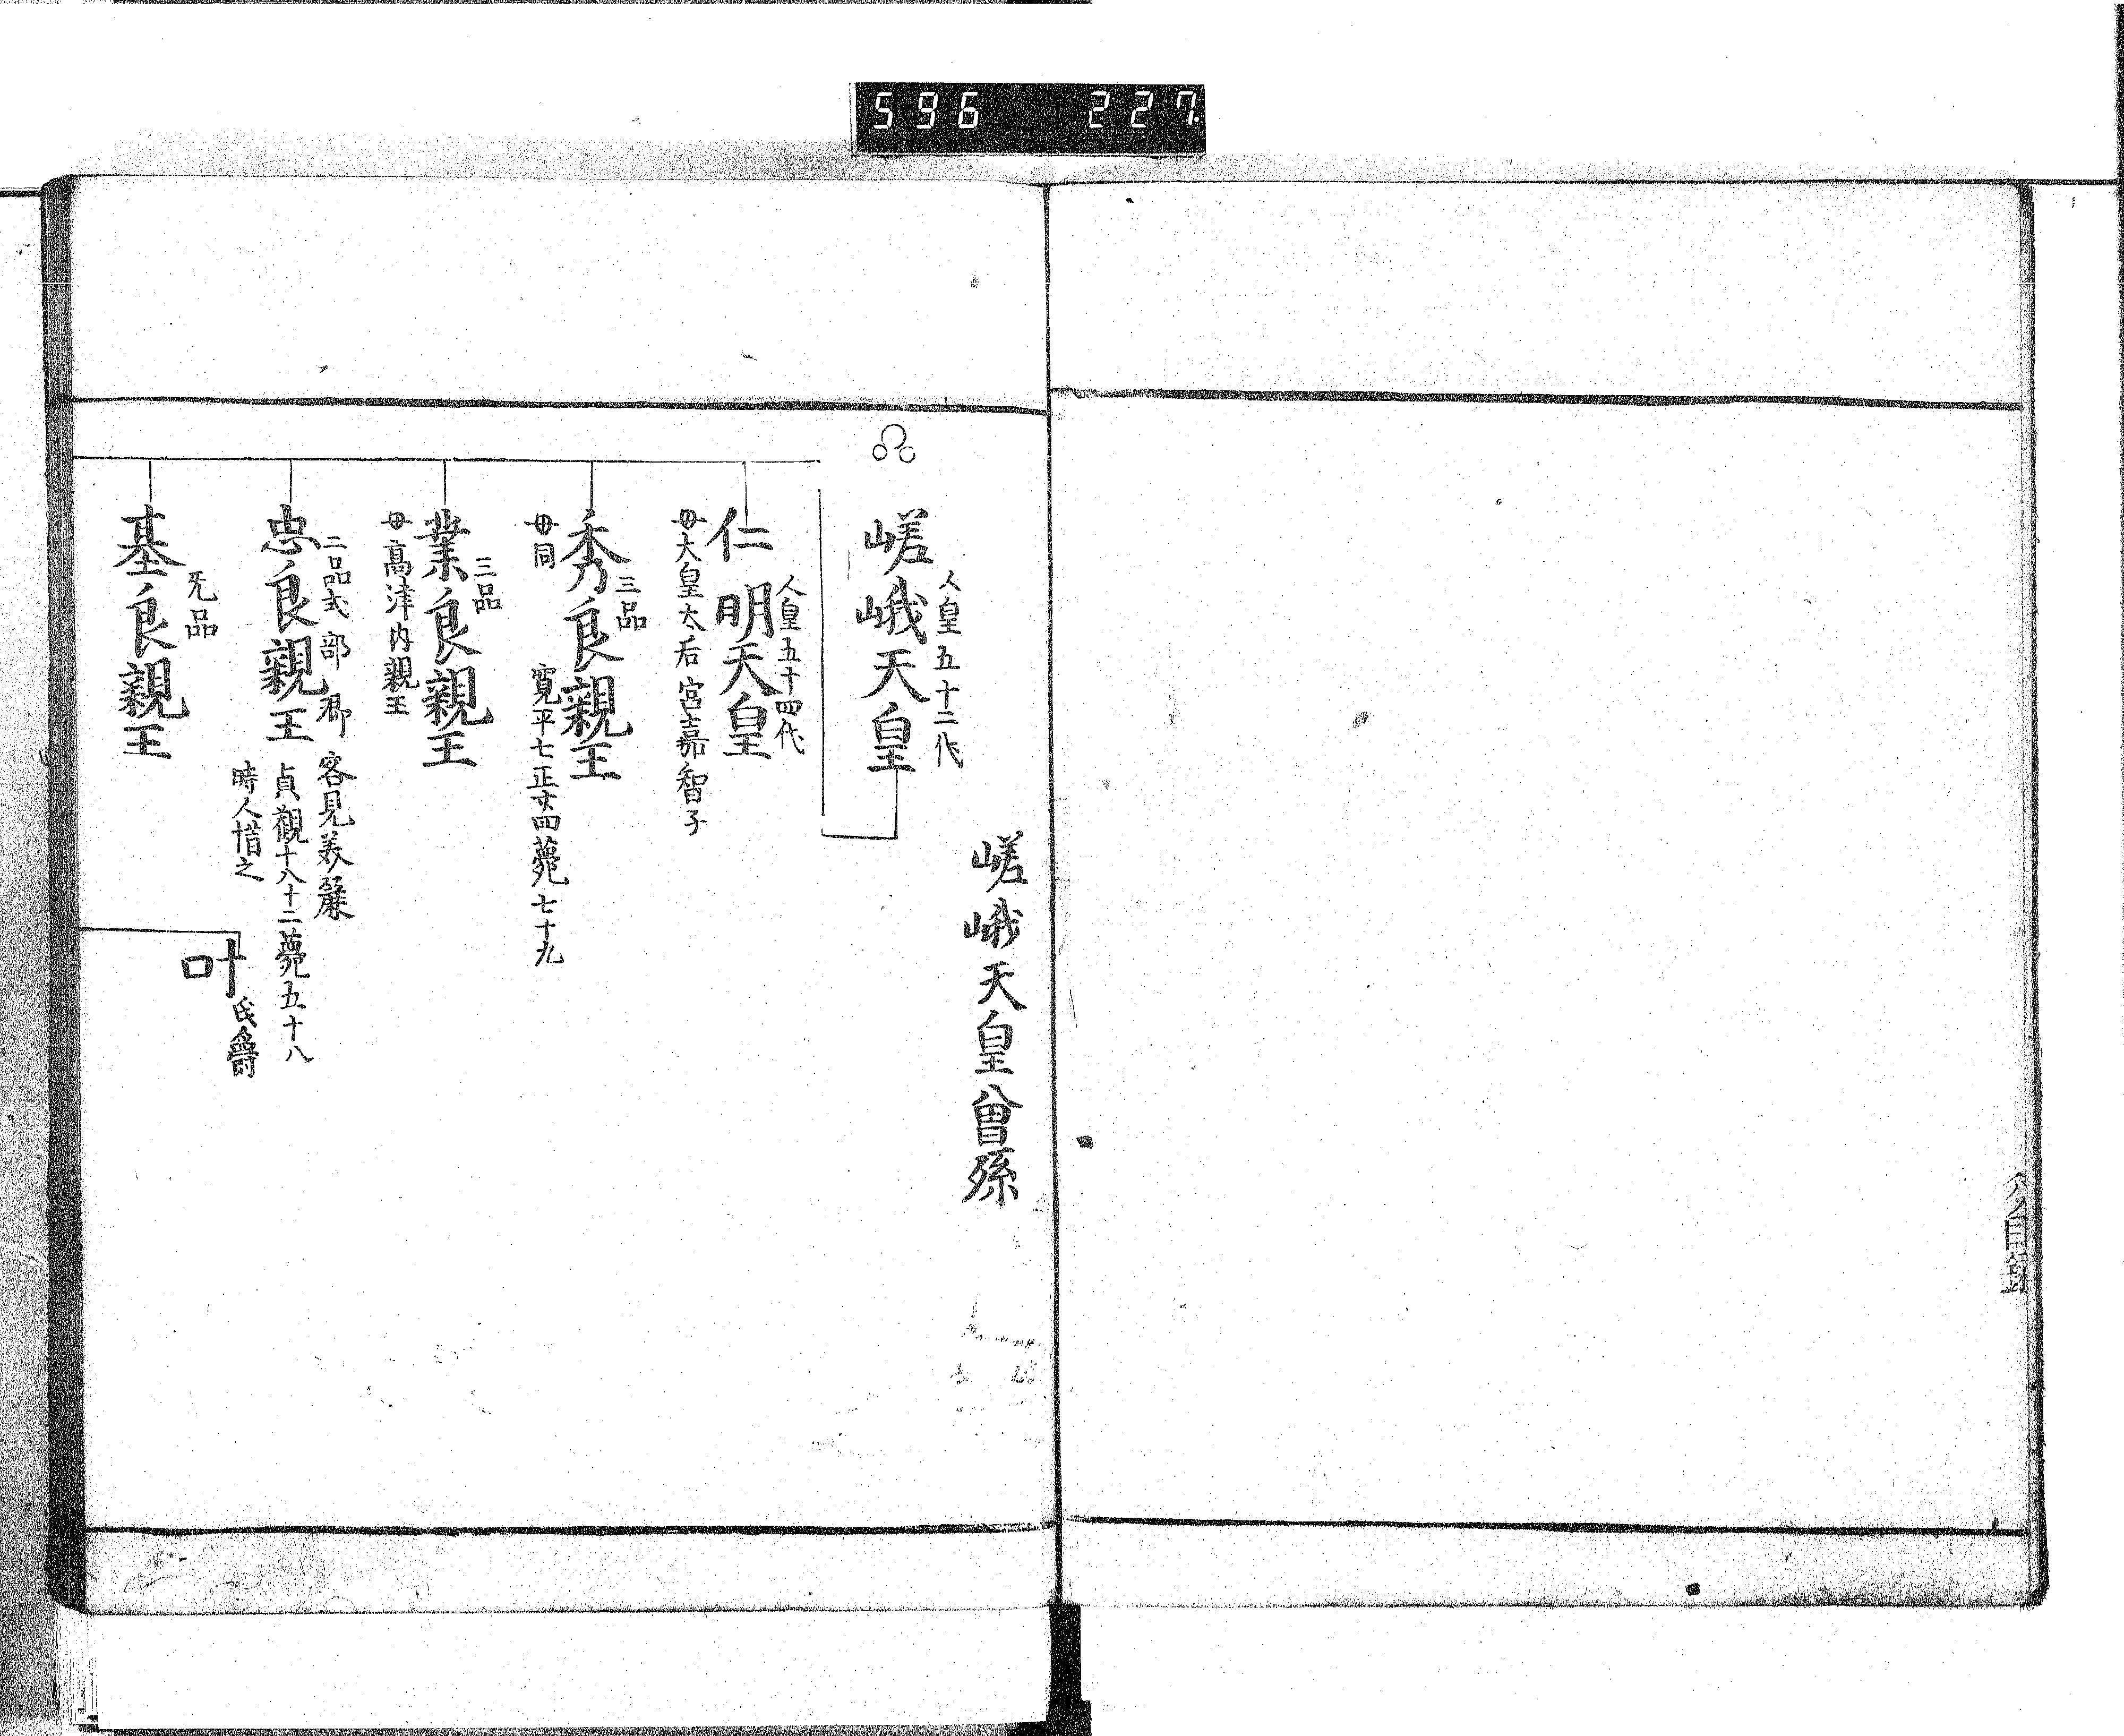 596 227.
目錄
嵯峨天皇曾孫
人皇五十二代
嵯峨天皇
人皇五十四代
仁明天皇
母大皇太后宮嘉智子
三品
秀良親王
母同
寛平七正廿四薨七十九
三品
業良親王
母高津内親王
二品式部卿
容見美麗
忠良親王
貞觀十八十二薨五十八
時人惜之
叶
氏爵
无品
基良親王